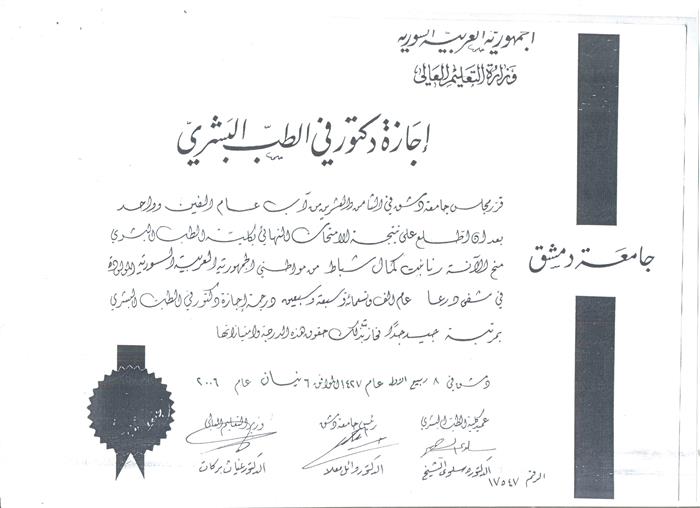 الجمهورية العربية السورية
وزارة التعليم العالي
إجازة دكتور في الطب البشري
جامعة دمشق
قرر مجلس جامعة دمشق في الثامن والعشرين من آب عام ألفين وواحد
بعد ان اطلع على نتيجة الامتحان النهائي لكلية الطب البشري
منح الآنسة رنا بنت كمال شباط من مواطني الجمهورية العربية السورية المولودة
في مشفى درعا عام الف وتسعمائة وسبعة وسبعين درجة إجازة دكتور في الطب البشري
بمرتبة جيد جداً فنالت بذلك حقوق هذه الدرجة وامتيازاتها
دمشق في ٨ ربيع الأول عام ١٤٢٧ الموافق ٦ نيسان عام ٢٠٠٦
عميد كلية الطب البشري
رئيس جامعة دمشق
وزير التعليم العالي
الدكتورة سلوى الشيخ
الدكتور وائل معلا
الدكتور غياث بركات
الرقم ١٧٥٤٧